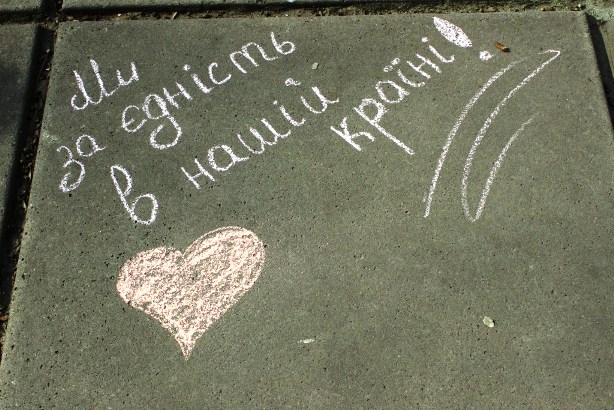 Ми
за єдність
в нашій
країні!